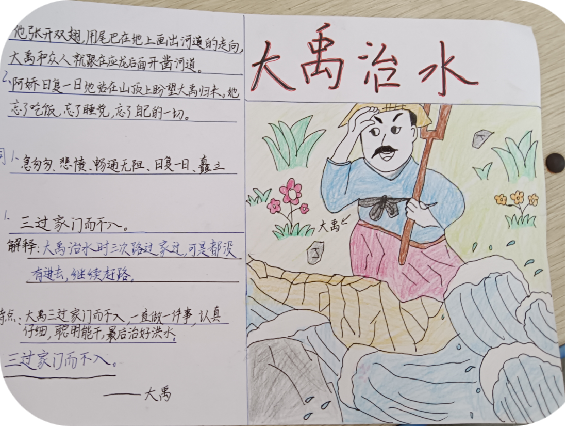 他张开双翅,用尾巴在地上画出河道的走向,
大禹和众人就跟在应龙后面开凿河道。
2.阿娇日复一日地站在山顶上盼望大禹归来,她
忘了吃饭,忘了睡觉,忘了自己的一切。
词1.急匆匆、悲愤、畅通无阻、日复一日、矗立
1.三过家门而不入。
解释:大禹治水时三次路过家边,可是都没
有进去,继续赶路。
特点:大禹三过家门而不入,一直做一件事,认真
仔细,聪明能干,最后治好洪水,
三过家门而不入。
——大禹
大禹治水
大禹